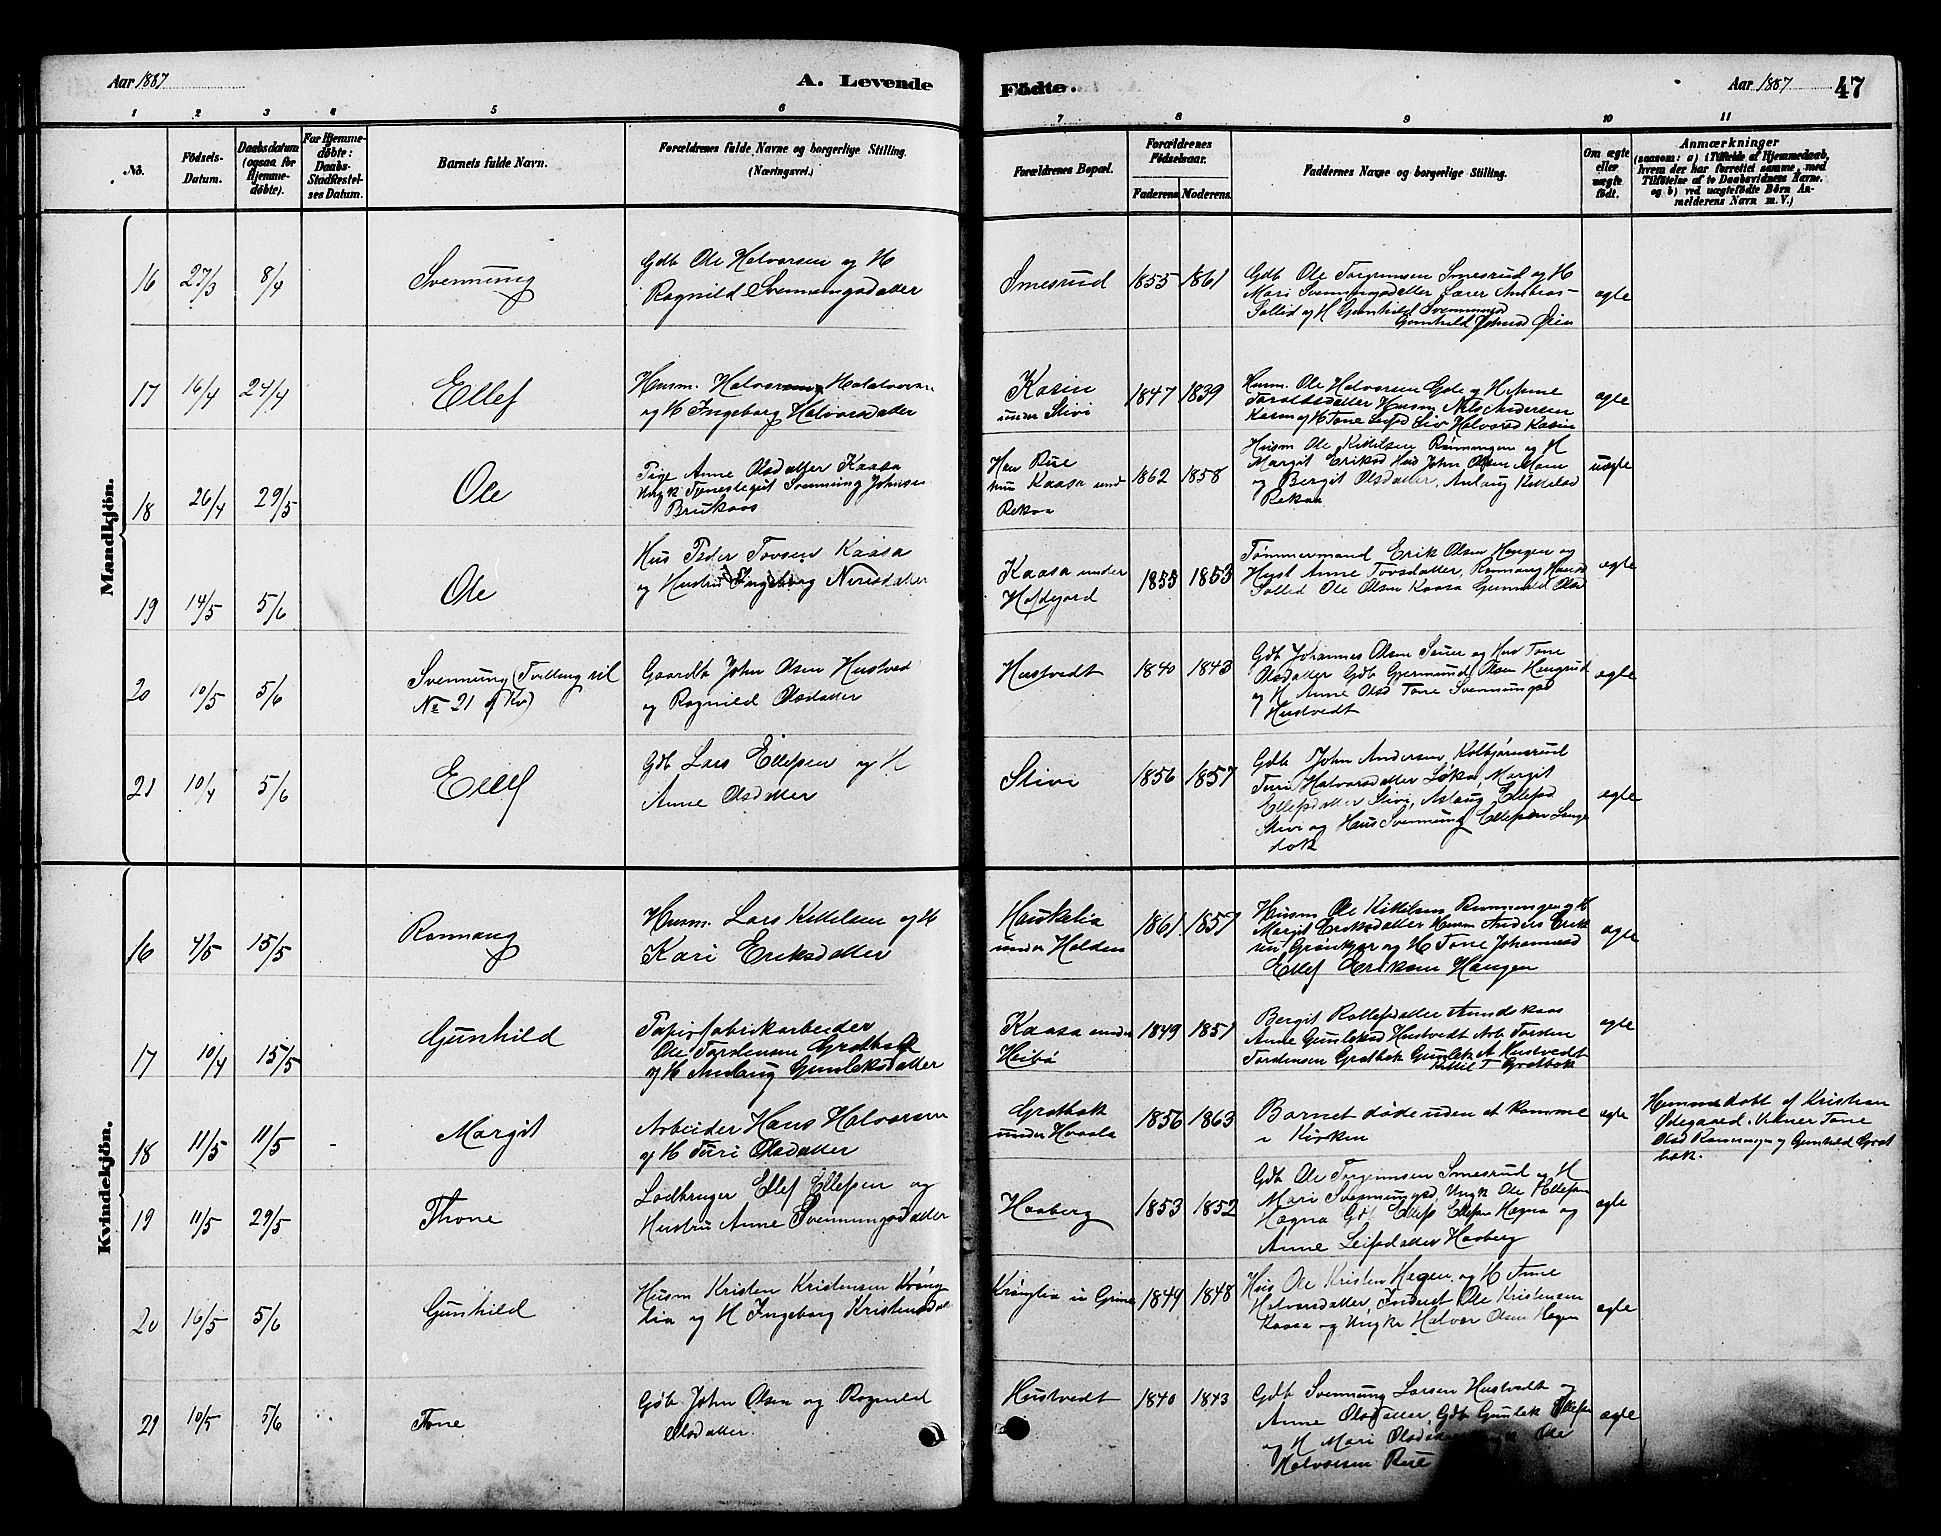 Aar 1887
A. Levende
Födte.
Aar 1887
47
1 2 3 4 5 6 7 8 9 10 11
No.
Födsels-
Datum.
Daabsdatum
(ogsaa for
Hjemme-
döbte).
For Hjemme-
döbte:
Daabs-
Stadfæstel-
ses Datum.
Barnets fulde Navn.
Forældrenes fulde Navne og borgerlige Stilling.
(Næringsvei.)
Forældrenes Bopæl.
Forældrenes
Födselsaar.
Faderens
Moderens.
Faddernes Navne og borgerlige Stilling.
Om ægte
eller
uægte
födt.
Anmærkninger
(saasom: a) i Tilfælde af Hjemmedaab,
hvem der har forrettet samme, med
Tilföielse af to Daabsvidners Navne,
og b) ved uægtefödte Börn An-
melderens Navn m. V.)
Mandkjön.
16 27/3 8/4
Svennung
Gdb Ole Halvorsen og H
Ragnild Svennungsdatter
Smesrud
1855 1861
Gdb Ole Torgrimsen Smesrud og H
Mari Svennungsdatter Lærer Andreas
Sollid og H Gunhild Svennungsd
Gunhild Johnsd Øien
ægte
17 16/4 24/4
Ellef
Husm. Halvorsen
og H Ingeborg Halvorsdatter
Kasin
under Stivi
1847 1839
Husm. Ole Halvorsen og H Anne
Taraldsdatter Husm Nils Andersen
Kasin og H Tone Leifsd Liv Halvorsd Kasin
ægte
18 26/4 29/5
Ole
Pige Anne Olsdatter Kaasa
Ungk Tjenestegut Svennung Johnsen
Brukaas
Han Rue
hun Kaasa und
Rekaa
1862 1858
Husm Ole Kittilsen Rønningen og H
Margit Eriksd Hus John Olsen Moen
og Bergit Olsdatter, Anlaug Kittilsd
Rekaa
uægte
19 14/5 5/6
Ole
Hus Peder Tovsen Kaasa
og Hustru Ingeborg Nirisdatter
Kaasa under
Hofdejord
1855 1853
Tømmermand Erik Olsen Haugen og
Hust Anne Tovsdatter, Rannaug
Sollid Ole Olsen Kaasa Gunnild Olsd
ægte
20 10/5 5/6
Svennung (Tvilling til
No 21 af Kv)
Gaardb John Olsen Hustved
og Ragnild Olsdatter
Hustvedt
1840 1843
Gdb Johannes Olsen Sauer og Hus Tone
Olsdatter Gdb Gjermund Olsen Haugrud
og H Anne Olsd Tone Svennungsd
Hustvedt
ægte
21 10/4 5/6
Ellef
Gdb Lars Ellefsen og H
Anne Olsdatter
Stivi
1856 1857
Gdb John Andersen, Kolbjørnsrud
Turi Halvorsdatter Løka, Margit
Ellefsdatter Stivi, Aslaug Ellefsd
Stivi og Hus Svennung Ellefsen Lange
bok
ægte
Kvindekjön.
16 4/5 15/5
Rannaug
Husm. Lars Kittilsen og H
Kari Eriksdatter
Haukelia
under Holden
1861 1857
Husm Ole Kittilsen Rønningen og H
Margit Eriksdatter Husm Anders Erik
sen Grønkjær og H Tone Johannesd
Ellef Eriksen Haugen
ægte
17 10/4 15/5
Gunhild
Papirfabrikarbeider
Ole Tordensen Grotbæk
og H Anlaug Gunleksdatter
Kaasa under
Heibø
1849 1851
Bergit Rollefsdatter Sundekaas
Anne Gunleksd Hustvedt Arb Torden
Tordensen Grotbæk Gunlek A Hustvedt
Kittil T Grotbæk
ægte
18 11/5 11/5
Margit
Arbeider Hans Halvorsen
og H Turi Olsdatter
Grotbæk
under Haasla
1856 1863
Barnet døde uden at komme
i Kirken
ægte
Hjemmedøbt af Kristian
Ødegaard. Vidner Tone
Olsd Rønningen og Gunhild Grot
bæk.
19 11/5 29/5
Thone
Lodbruger Ellef Ellefsen og
Hustru Anne Svennungsdatter
Haaberg
1853 1852
Gdb Ole Torgrimsen Smesrud og H
Mari Svennungsd, Ungk Ole Ellefsen
Høgna Gdb Ellef Ellefsen Høgna og
Anne Leifsdatter Haaberg
ægte
20 16/5 5/6
Gunhild
Husm Kristen Kristensen Krøng
lia og H Ingeborg Kristensdat
Krønglia u Grime
1849 1848
Hus Ole Kristen Hegen og H Anne
Halvorsdatter, Inderst Ole Kristensen
Kaasa og Ungkr Halvor Olsen Hegen
ægte
21 10/5 5/6
Tone
Gdb John Olsen og Ragnild
Olsdatter.
Hustvedt
1840 1843
Gdb Svennung Larsen Hustvedt og
Anne Olsdatter, Gdb Gunlek Ellefsen
og H Mari Ole
Halvorsen Rue
ægte